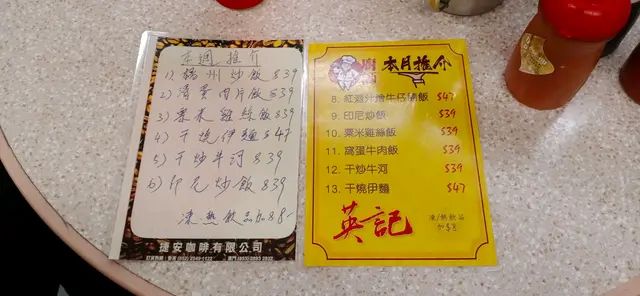 正週推介
1) 楊州炒飯 $39
2) 滑蛋肉片飯 $39
3) 粟米雞絲飯 $39
4) 干燒伊麵 $47
5) 干炒牛河 $39
6) 印尼炒飯 $39
凍熱飲品加$8-
捷安咖啡有限公司
本月推介
8. 紅酒汁燴牛仔腩飯 $47
9. 印尼炒飯 $39
10. 粟米雞絲飯 $39
11. 窩蛋牛肉飯 $39
12. 干炒牛河 $39
13. 干燒伊麵 $47
英記
凍/熱飲品
加$8